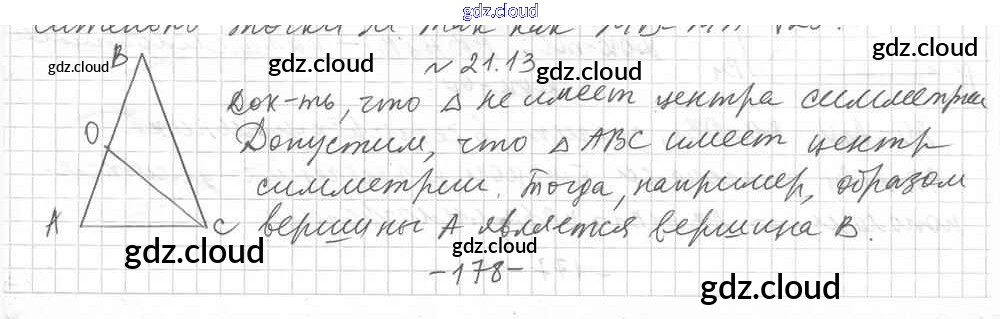 gdz.cloud
gdz.cloud gdz.cloud gdz.cloud
B
№ 21.13
Док-ть, что △ не имеет центра симметрии
O
Допустим, что △ABC имеет центр
симметрии. Тогда, например, образом
A
C
вершины A является вершина B.
gdz.cloud gdz.cloud gdz.cloud
gdz.cloud gdz.cloud gdz.cloud
-178-
gdz.cloud gdz.cloud